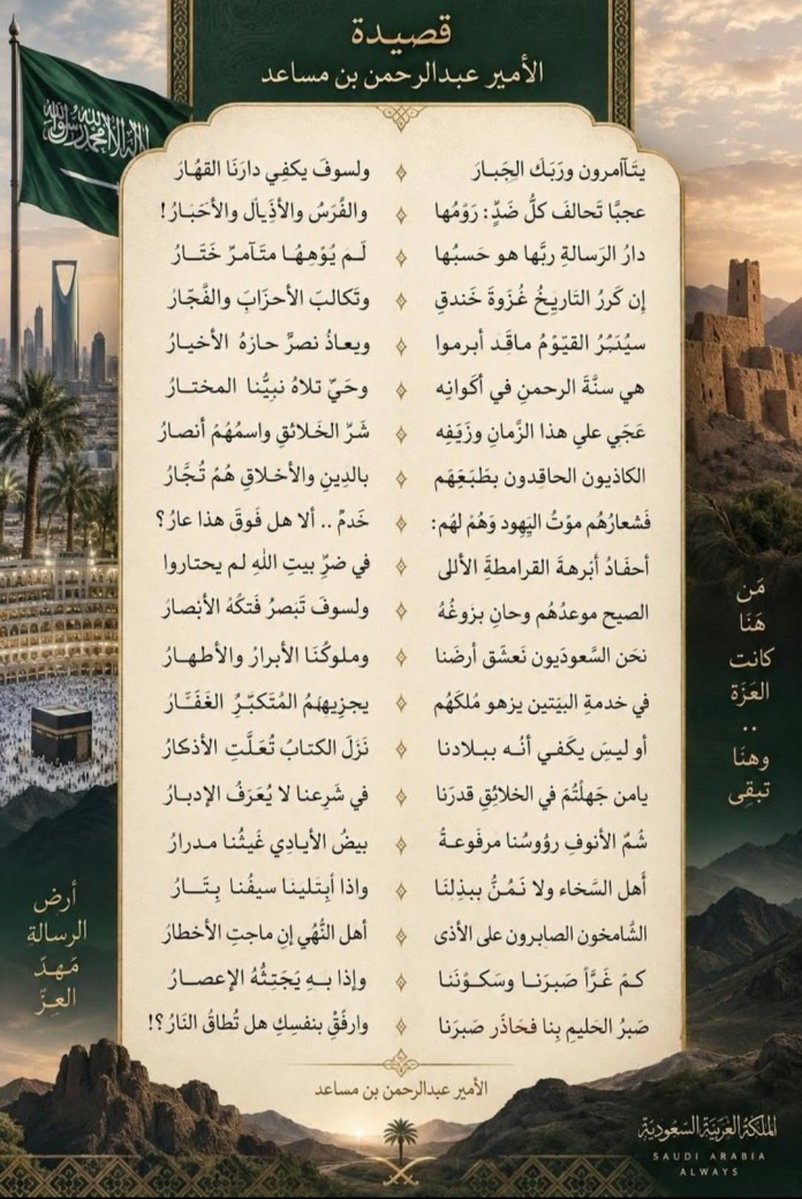 قصيدة
الأمير عبدالرحمن بن مساعد
لا إله إلا الله محمد رسول الله
يتَآآمرون ورَبَك الجَبـارَ ولسوفَ يكفِي دارَنَا القهُارَ
عجبًا تَحالفَ كلُّ ضَدٍّ: رَوْمُها والفُرَسُ والأذِيـاُل والأحَبَـارُ!
دارُ الرَسالةِ ربَّها هو حَسبُها لَـم يُوْهِهُـا متَآمرّ خَتَــارُ
إن كَررُ التَاريِخُ غُزَوةَ خَندقِ وتَكالبَ الأحزَابَ والفَجّارُ
سيُدَبُرُ القيّوْمُ ماقَد أبرموا ويعـاذُ نصرَّ حازهُ الأخيـارُ
هي سنَّةَ الرحمنِ في أكَوانِه وحَيّ تلاهُ نبيُّنا المختــارُ
عَجَبِي علي هذا الزَّمانِ وزَيَفِه شَرّ الخَلائقِ واسمُهُمْ أنصـارُ
الكاذيون الحاقِدون بطَبَعَِهَم بالدِينِ والأخـلاقِ هُمْ تُجَّارُ
فَشعارُهُم موْتُ اليَهِود وَهُمْ لهُم: خَدمّ .. ألا هل فَوقَ هذا عارُ؟
أحفَـادُ أبَرهـةَ القرامطةَ الأللى في ضرِّ بيتِ اللهِ لم يحتاروا
الصيح موعدُهُم وحانِ بزوغُهُ ولسوفَ تَبَصرُ فَتكُهُ الأبْصارُ
نحَن السَّعودَيون نَعشَق أرضَنا وملوكُنَا الأبرارُ والأطهـارُ
في خدمةِ البيَتين يزهو مُلكَهُم يجزِيهَمُ المُتَكبّرِّ الغَفَّــارُ
أو ليسَ يكَفـي أنُـه ببـلادنا نَزَلَ الكتابُ تُعَلَّتِ الأذكارُ
يامن جَهلْتُمَ في الخلائِقِ قدرَنا في شَرِعنا لا يُعَرَفُ الإدبـارُ
شُمٌ الأنوفِ رؤوسُنا مرفَوعـةُ بيضُ الأيـادِي غَيثُنـا مـدرارُ
أَهل السَّخاء ولا نَمُـنُّ ببذِلنَـا واذا أبِتَلينـا سيفُنـا بِتَــارُ
الشَّامخون الصابرون على الأذى أهل النُّهُي إنِ ماجتِ الأخطارُ
كـمّ غَـرَّاً صَبرَنـا وسَكـوْنَنا وإذا بـهِ يَجَتِثُّهُ الإعصـارُ
صَبرُ الحَليمِ بِنا فحَاذَر صَبرَنا وارفَقْ بنفسِكِ هل تُطاقُ النَارُ؟!
الأمير عبدالرحمن بن مساعد
مَن
هَنَا
كانت
العَزَة
..
وهنَا
تبقِى
أرض
الرسالة
مَـهـدَ
العِـزّ
المملكة العربية السعودية
SAUDI ARABIA
ALWAYS